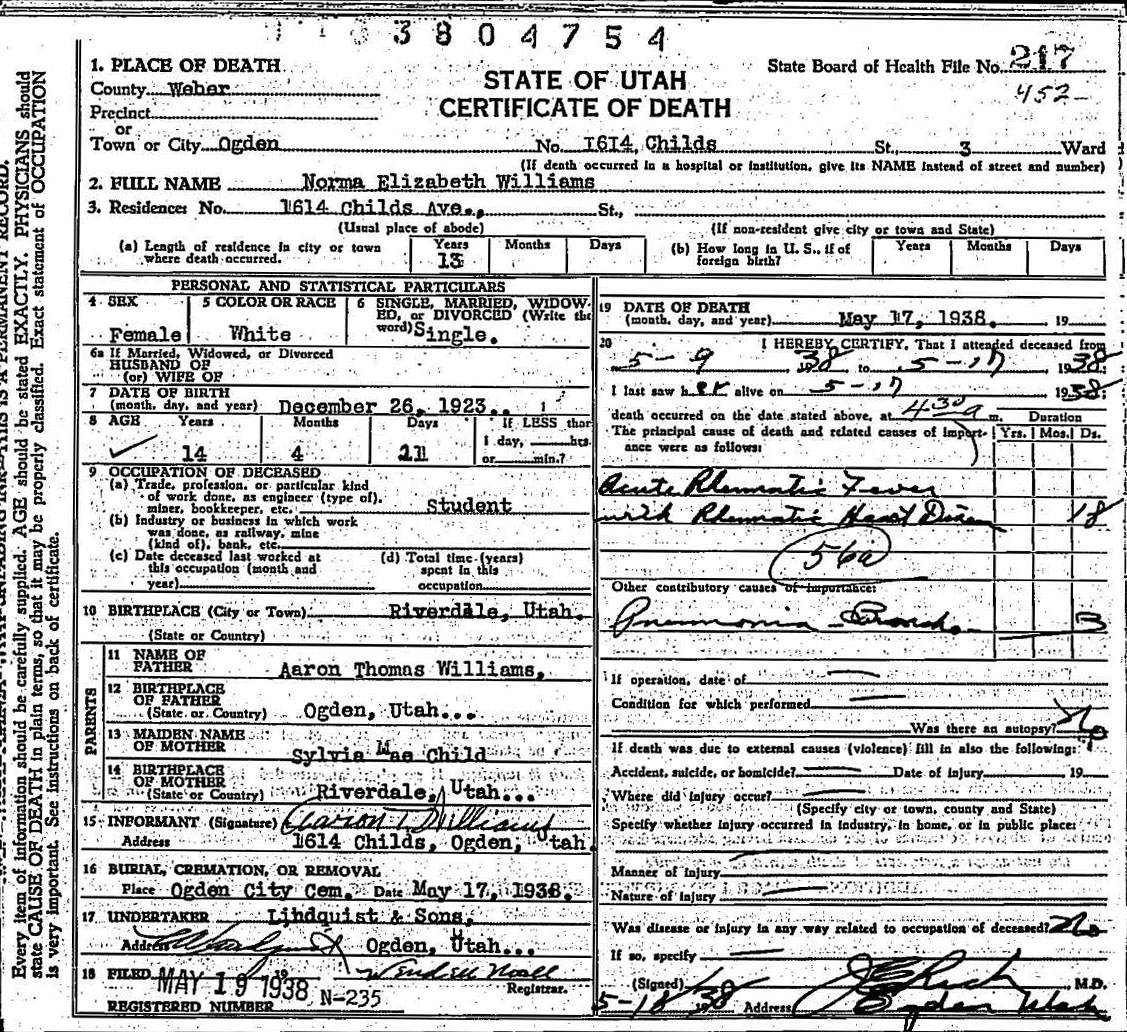 3804754
1. PLACE OF DEATH
STATE OF UTAH
CERTIFICATE OF DEATH
State Board of Health File No. 217
452-
County Weber
Precinct
or
Town or City Ogden No. 1614, Childs St., 3 Ward
(If death occurred in a hospital or institution, give its NAME instead of street and number)
2. FULL NAME Norma Elizabeth Williams
3. Residence: No. 1614 Childs Ave., St.,
(Usual place of abode) (If non-resident give city or town and State)
(a) Length of residence in city or town where death occurred. Years 13 Months Days
(b) How long in U. S., if of foreign birth? Years Months Days
PERSONAL AND STATISTICAL PARTICULARS
4 SEX Female
5 COLOR OR RACE White
6 SINGLE, MARRIED, WIDOWED, or DIVORCED (Write the word) Single.
6a If Married, Widowed, or Divorced
HUSBAND OF
(or) WIFE OF
7 DATE OF BIRTH
(month, day, and year) December 26, 1923..
8 AGE Years 14 Months 4 Days 21 If LESS than 1 day, hrs. or min.?
9 OCCUPATION OF DECEASED
(a) Trade, profession, or particular kind
of work done, as engineer (type of),
miner, bookkeeper, etc. Student
(b) Industry or business in which work
was done, as railway, mine
(kind of), bank, etc.
(c) Date deceased last worked at
this occupation (month and
year)
(d) Total time (years)
spent in this
occupation
10 BIRTHPLACE (City or Town) Riverdale, Utah.
(State or Country)
PARENTS
11 NAME OF
FATHER Aaron Thomas Williams,
12 BIRTHPLACE
OF FATHER
(State or Country) Ogden, Utah...
13 MAIDEN NAME
OF MOTHER Sylvia Mae Child
14 BIRTHPLACE
OF MOTHER
(State or Country) Riverdale, Utah...
15 INFORMANT (Signature) Aaron T Williams
Address 1614 Childs, Ogden, tah.
16 BURIAL, CREMATION, OR REMOVAL
Place Ogden City Cem. Date May 17, 1938.
17 UNDERTAKER Lindquist & Sons,
Address Ogden, Utah...
18 FILED MAY 19 1938 19 Wendell Noall
Registrar.
REGISTERED NUMBER N-235
19 DATE OF DEATH
(month, day, and year) May 17, 1938. 19
20 I HEREBY CERTIFY, That I attended deceased from
5-9 1938 to 5-17 1938.
I last saw her alive on 5-17 1938.
death occurred on the date stated above, at 4 30 a m.
Duration
The principal cause of death and related causes of importance were as follows: Yrs. Mos. Ds.
Acute Rheumatic Fever
with Rheumatic Heart Disease 18
56a
Other contributory causes of importance:
Pneumonia Bronch. 3
If operation, date of
Condition for which performed
Was there an autopsy? No
If death was due to external causes (violence) fill in also the following:
Accident, suicide, or homicide? Date of injury 19
Where did injury occur?
(Specify city or town, county and State)
Specify whether injury occurred in industry, in home, or in public place:
Manner of Injury
Nature of injury
Was disease or injury in any way related to occupation of deceased? No
If so, specify
(Signed) Rich M.D.
5-18 1938 Address Ogden Utah
Every item of information should be carefully supplied. AGE should be stated EXACTLY. PHYSICIANS should
state CAUSE OF DEATH in plain terms, so that it may be properly classified. Exact statement of OCCUPATION
is very important. See instructions on back of certificate.